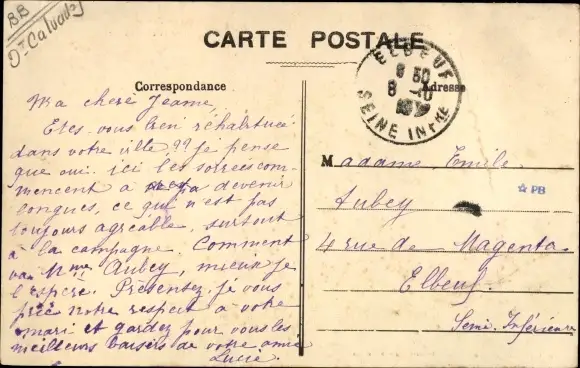 BB
Dt Calvados
CARTE POSTALE
ELBEUF
8 -10
SEINE INFRE
Correspondance
Adresse
Ma chère Jeanne,
Etes-vous bien réhabituée
dans votre ville ?? je pense
que oui. ici les soirées com-
mencent à devenir
longues, ce qui n'est pas
toujours agréable, surtout
à la campagne. Comment
va Mme Aubey, mieux je
l'espère. Présentez, je vous
prie notre respect à votre
mari et gardez pour vous les
meilleurs baisers de votre amie
Lucie.
Madame Emile
Aubey
PB
4 rue de Magenta
Elbeuf
Seine Inférieure